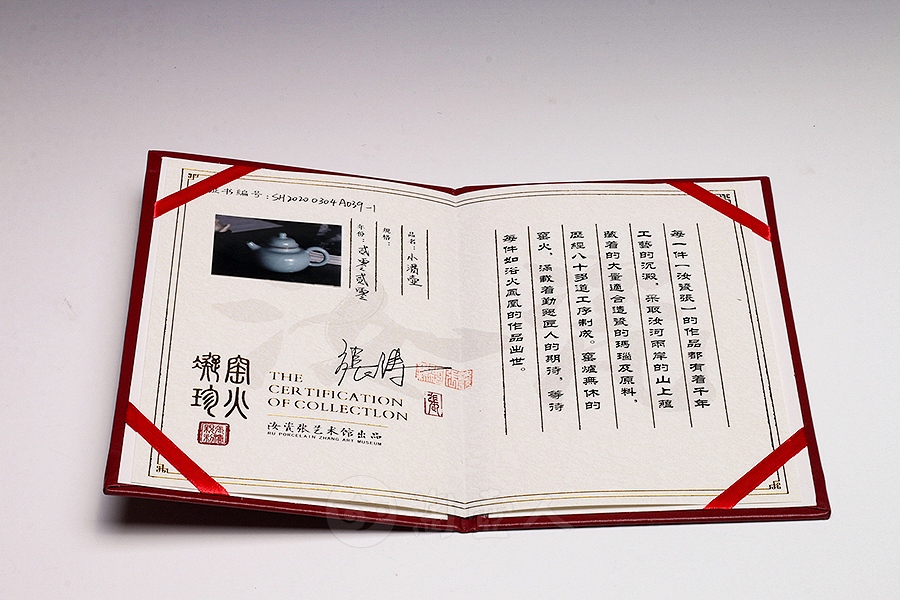 证书编号：SH20200304A039-1
品名：小潽壶
规格：
年份：贰零贰零
窑火
凝珍
THE
CERTIFICATION
OF COLLECTLON
汝瓷张艺术馆出品
RU PORCELAIN ZHANG ART MUSEUM
每一件一汝瓷張一的作品都有着千年
工藝的沉澱，采取汝河兩岸的山上蘊
藏着的大量適合造瓷的瑪瑙灰原料，
歷經八十多道工序制成。窑爐無休的
窑火，滿載着勤懇匠人的期待，等待
每件如浴火鳳凰的作品出世。